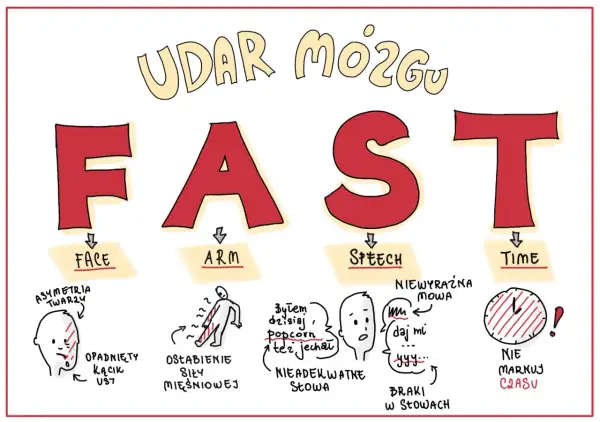 UDAR MÓZGU
FAST
FACE
ARM
SPEECH
TIME
ASYMETRIA
TWARZY
OPADNIĘTY
KĄCIK
UST
OSŁABIENIE
SIŁY
MIĘŚNIOWEJ
Byłem
dzisiaj,
popcorn
też jechał
NIEADEKWATNE
SŁOWA
NIEWYRAŹNA
MOWA
daj mi
... yyy...
BRAKI
W SŁOWACH
NIE
MARNUJ
CZASU
!